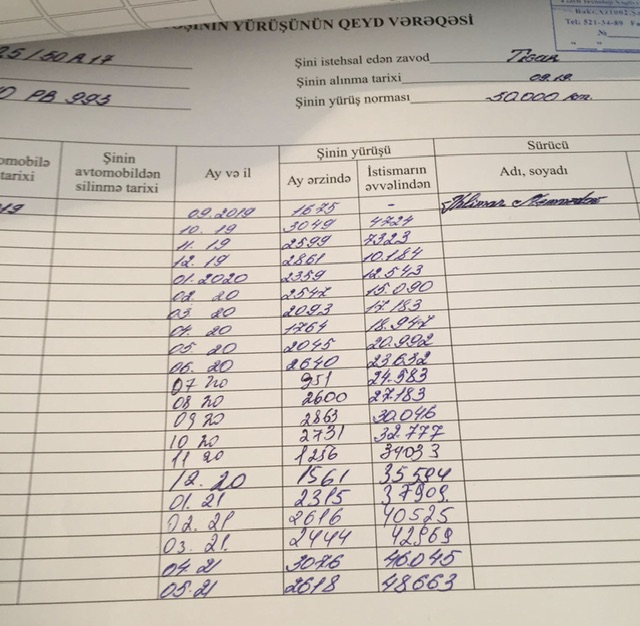 YÜRÜŞÜNÜN QEYD VƏRƏQƏSİ
Tel: 521-34-89
25/50 R 17
PB 993
Şini istehsal edən zavod Tigar
Şinin alınma tarixi 09.19
Şinin yürüş norması 50.000 km.
tarixi
Şinin avtomobildən silinmə tarixi
Ay və il
Şinin yürüşü
Ay ərzində
İstismarın əvvəlindən
Sürücü
Adı, soyadı
19 09.2019 1675 -
10. 19 3049 4724
11. 19 2599 7323
12. 19 2861 10.184
01.2020 2359 12.543
02. 20 2547 15.090
03. 20 2093 17.183
04. 20 1764 18.947
05. 20 2045 20.992
06. 20 2640 23.632
07 20 951 24.583
08 20 2600 27.183
09 20 2863 30.046
10 20 2731 32.777
11 20 1256 34033
12. 20 1561 35594
01. 21 2315 37909.
02. 21 2616 40525
03. 21. 2444 42969
04. 21 3076 46.045
05. 21 2618 48663